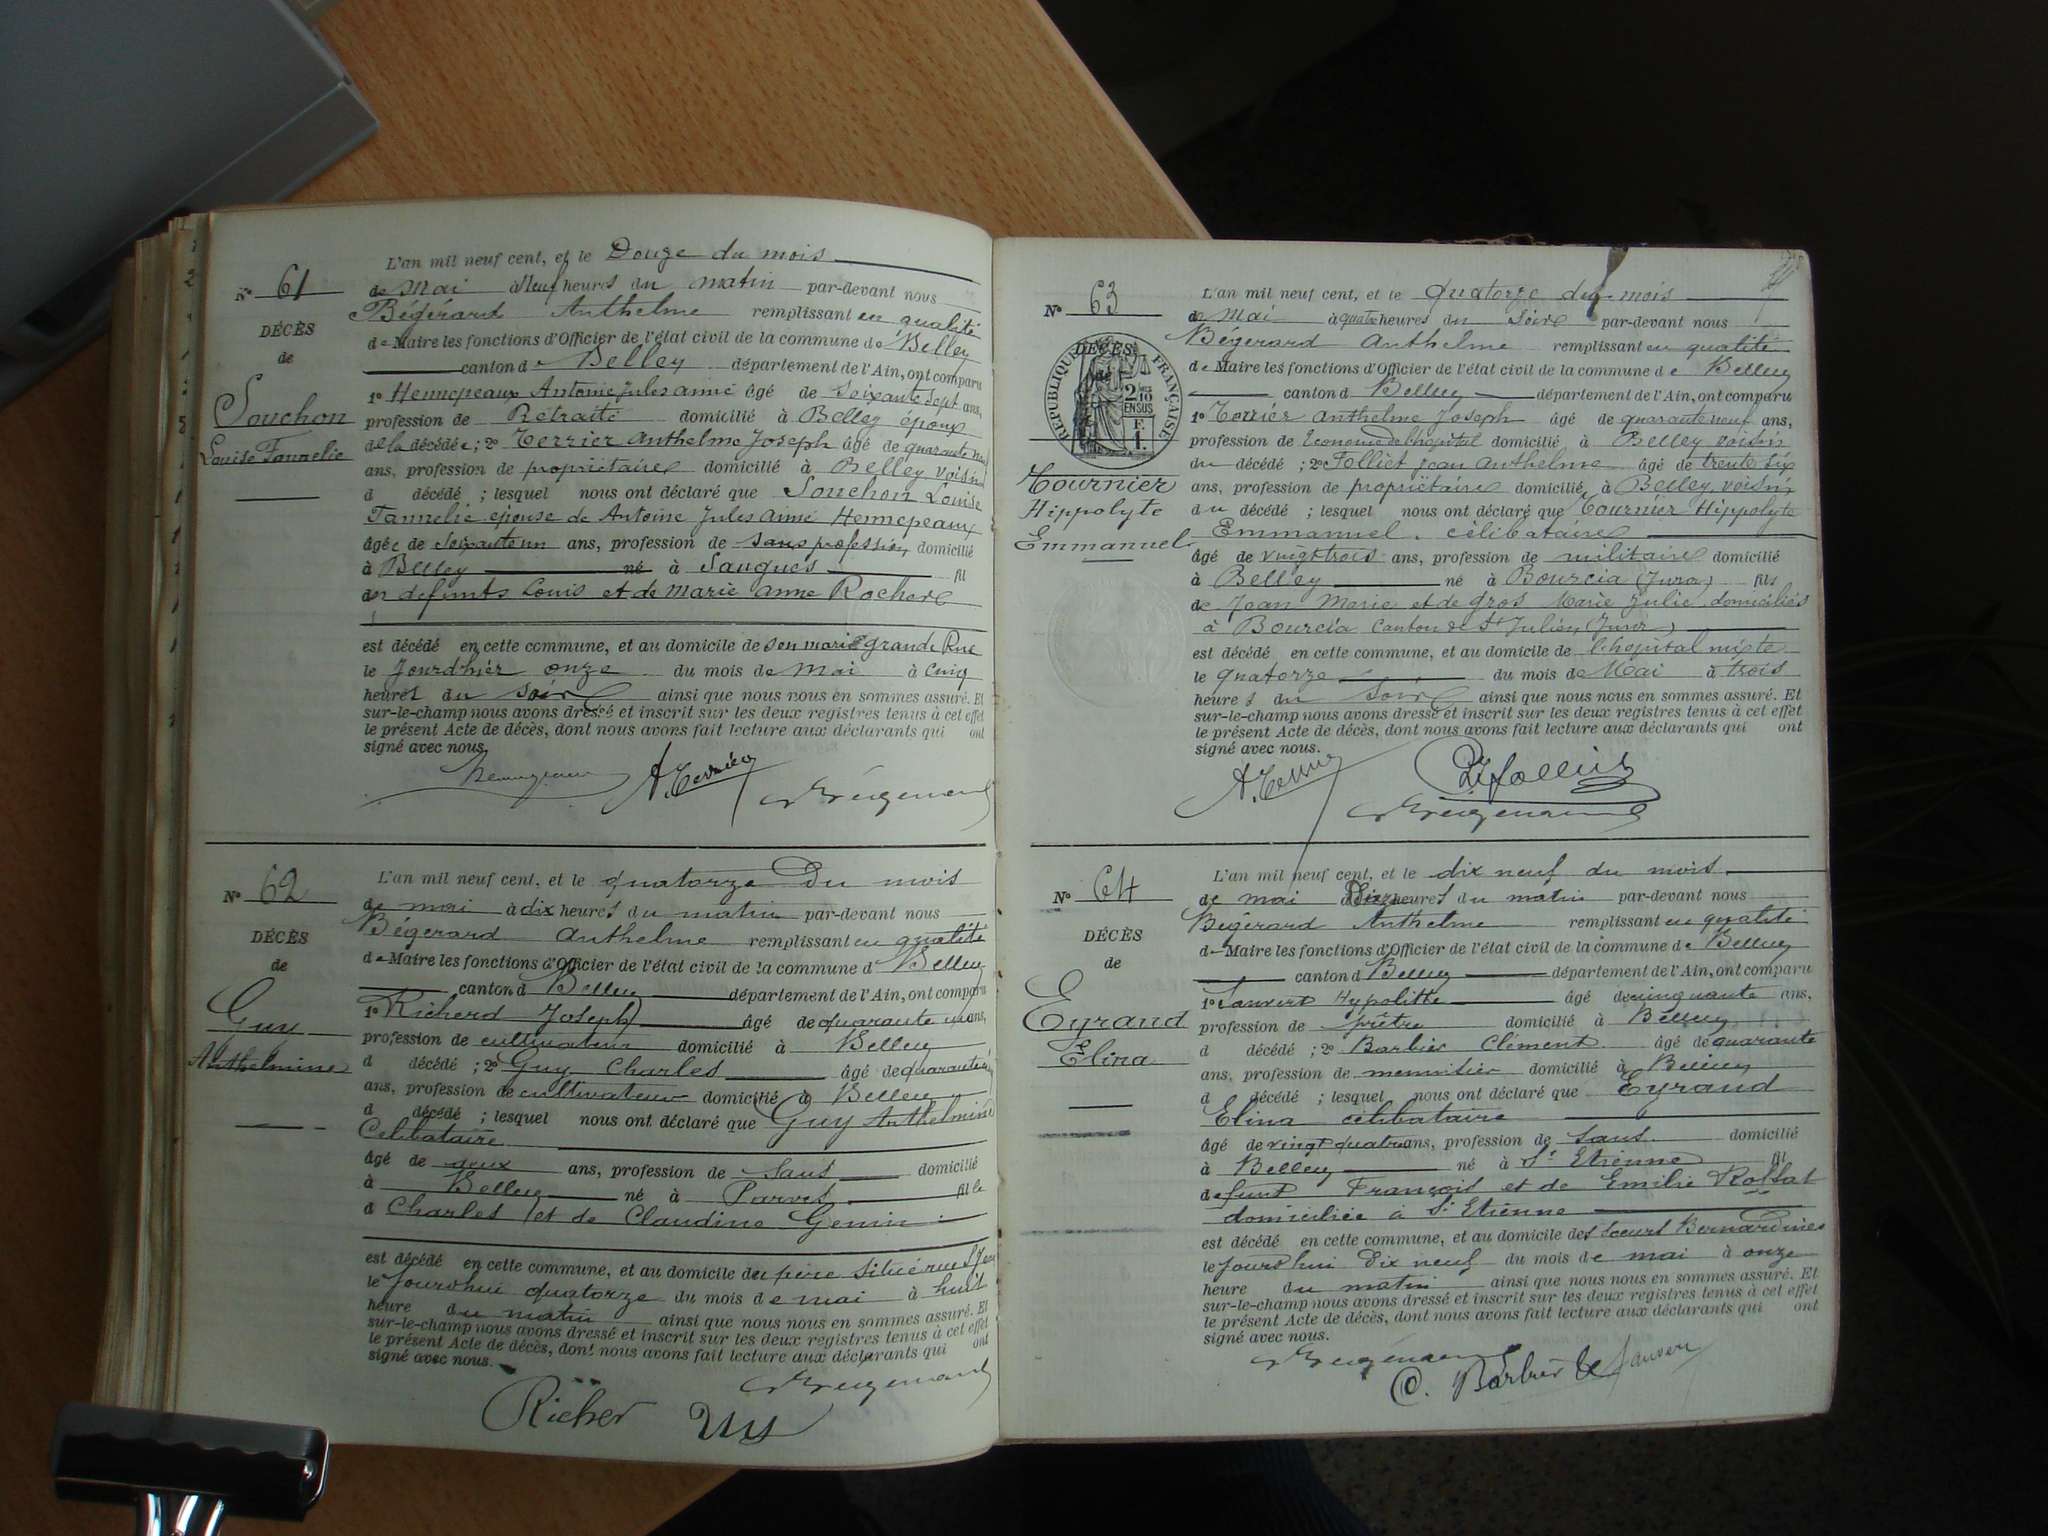 L'an mil neuf cent, et le Douze du mois
No 61
de Mai à Neuf heures du matin par-devant nous
Bégérard Anthelme remplissant en qualité
DÉCÈS
de Maire les fonctions d'Officier de l'état civil de la commune de Belley
de
canton d Belley département de l'Ain, ont comparu
1o Hennepeaux Antoine Jules aimé âgé de soixante sept ans,
Souchon
profession de Retraité domicilié à Belley époux
Louise Fannelie
de la décédée ; 2o Terrier Anthelme Joseph âgé de quarante neuf
ans, profession de propriétaire domicilié à Belley voisin
d décédé ; lesquel nous ont déclaré que Souchon Louise
Fannelie épouse de Antoine Jules aimé Hennepeaux
âgée de soixante un ans, profession de sans profession domicilié
à Belley né à Saugues fil
des defunts Louis et de Marie Anne Rocher
est décédé en cette commune, et au domicile de son mari grande Rue
le Jourd'hier onze du mois de Mai à cinq
heures du soir ainsi que nous nous en sommes assuré. Et
sur-le-champ nous avons dressé et inscrit sur les deux registres tenus à cet effet
le présent Acte de décès, dont nous avons fait lecture aux déclarants qui ont
signé avec nous.
A. Terrier
No 62
L'an mil neuf cent, et le quatorze Du mois
de mai à dix heures du matin par-devant nous
Bégerard Anthelme remplissant en qualité
DÉCÈS
de Maire les fonctions d'Officier de l'état civil de la commune d Belley
de
canton d Belley département de l'Ain, ont comparu
1o Richerd Joseph âgé de quarante un ans,
Guy
profession de cultivateur domicilié à Belley
Anthelmine
d décédé ; 2o Guy Charles âgé de quarante
ans, profession de cultivateur domicilié à Belley
d décédé ; lesquel nous ont déclaré que Guy Anthelmine
Celibataire
âgé de deux ans, profession de sans domicilié
à Belley né à Parves fille
d Charles et de Claudine Genin
est décédé en cette commune, et au domicile du père situé rue St Jean
le Jourd'hui quatorze du mois de mai à huit
heure du matin ainsi que nous nous en sommes assuré. Et
sur-le-champ nous avons dressé et inscrit sur les deux registres tenus à cet effet
le présent Acte de décès, dont nous avons fait lecture aux déclarants qui ont
signé avec nous.
Richer Guy
No 63
L'an mil neuf cent, et le quatorze du mois
de Mai à quatre heures du soir par-devant nous
Bégerard Anthelme remplissant en qualité
DÉCÈS
de
RÉPUBLIQUE FRANÇAISE
2/10 EN SUS
1 F.
de Maire les fonctions d'Officier de l'état civil de la commune de Belley
canton d Belley département de l'Ain, ont comparu
1o Terrier Anthelme Joseph âgé de quarante neuf ans,
profession de Econome de l'hopital domicilié à Belley voisin
du décédé ; 2o Folliet Jean Anthelme âgé de trente six
Tournier
Hippolyte
Emmanuel
ans, profession de propriétaire domicilié à Belley, voisin
du décédé ; lesquel nous ont déclaré que Tournier Hippolyte
Emmanuel célibataire
âgé de vingt trois ans, profession de militaire domicilié
à Belley né à Bourcia (Jura) fils
de Jean Marie et de Gros Marie Julie domiciliés
à Bourcia Canton de St Julien (Jura)
est décédé en cette commune, et au domicile de l'hopital mixte
le quatorze du mois de Mai à trois
heures du Soir ainsi que nous nous en sommes assuré. Et
sur-le-champ nous avons dressé et inscrit sur les deux registres tenus à cet effet
le présent Acte de décès, dont nous avons fait lecture aux déclarants qui ont
signé avec nous.
A. Terrier
No 64
L'an mil neuf cent, et le dix neuf du mois
de mai à heures du matin par-devant nous
Bégerard Anthelme remplissant en qualité
DÉCÈS
de Maire les fonctions d'Officier de l'état civil de la commune de Belley
de
canton d Belley département de l'Ain, ont comparu
1o Sauvert Hypolitte âgé de cinquante ans,
Eyraud
profession de prêtre domicilié à Belley
Elina
d décédé ; 2o Barbier Clément âgé de quarante
ans, profession de menuisier domicilié à Belley
d décédé ; lesquel nous ont déclaré que Eyraud
Elina celibataire
âgé de vingt quatre ans, profession de sans domicilié
à Belley né à St Etienne fil
defunt François et de Emilie Rossat
domiciliée à St Etienne
est décédé en cette commune, et au domicile des soeurs Bernardines
le jourd'hui Dix neuf du mois de mai à onze
heure du matin ainsi que nous nous en sommes assuré. Et
sur-le-champ nous avons dressé et inscrit sur les deux registres tenus à cet effet
le présent Acte de décès, dont nous avons fait lecture aux déclarants qui ont
signé avec nous.
C. Barbier